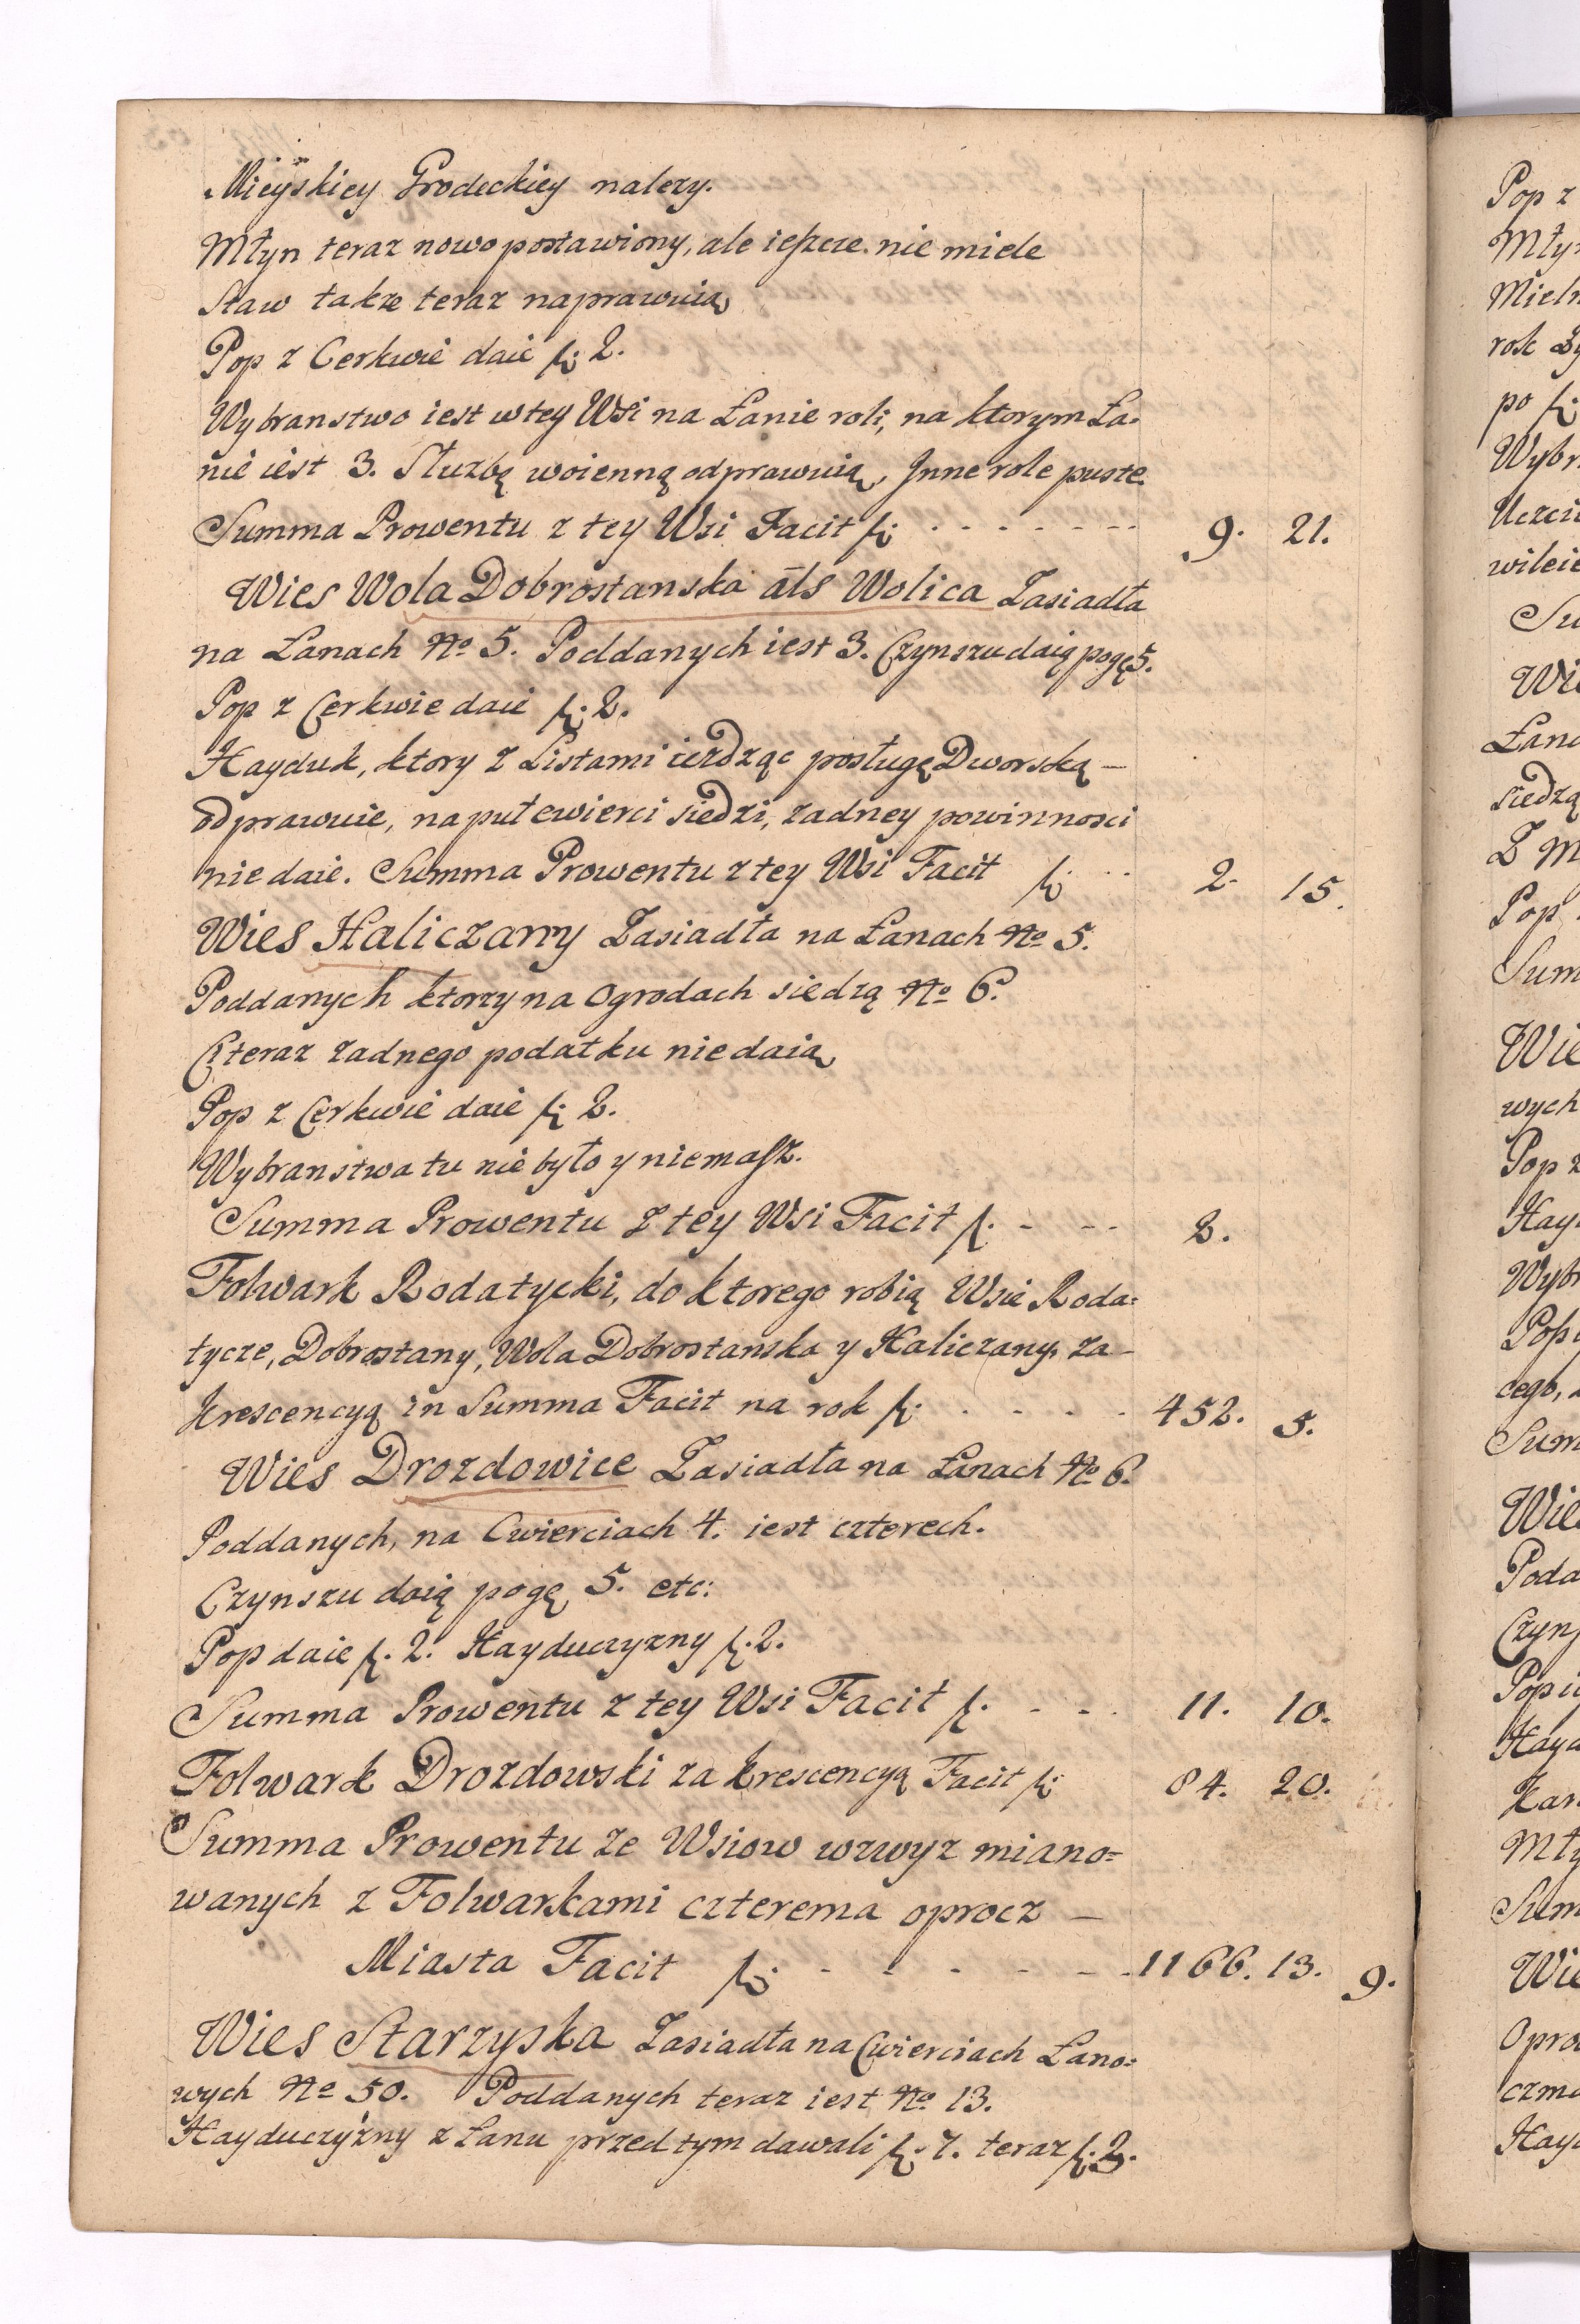 Mieyskiey Grodeckiey nalezy.
Młyn teraz nowo postawiony, ale ieszcze nie miele
Staw takze teraz naprawuią
Pop z Cerkwie daie f: 2.
Wybranstwo iest w tey Wsi na Łanie roli, na ktorym Ła-
nie iest 3. Słuzbą woienną odprawuią, Inne role puste.
Summa Prowentu z tey Wsi Facit f: - - - - - - - 9. 21.
Wies Wola Dobrostanska als Wolica Zasiadła
na Łanach No 5. Poddanych iest 3. Czynszu daią pogę 5.
Pop z Cerkwie daie f: 2.
Hayduk, ktory z Listami iezdząc posługę Dworską —
odprawuie, na puł cwierci siedzi, zadney powinnosci
nie daie. Summa Prowentu z tey Wsi Facit f: - - 2. 15.
Wies Haliczany Zasiadła na Łanach No 5.
Poddanych ktorzy na Ogrodach siedzą No 6.
Ci teraz zadnego podatku nie daią
Pop z Cerkwie daie f: 2.
Wybranstwa tu nie było y niemasz.
Summa Prowentu z tey Wsi Facit f: - - - 2.
Folwark Rodatycki, do ktorego robią Wsie Roda=
tycze, Dobrostany, Wola Dobrostanska y Haliczany, za-
krescencyą in Summa Facit na rok f: - - - - - 452. 5.
Wies Drozdowice Zasiadła na Łanach No 6.
Poddanych, na Cwierciach 4. iest czterech.
Czynszu daią pogę 5. etc:
Pop daie f: 2. Hayduczyzny f: 2.
Summa Prowentu z tey Wsi Facit f: - - - 11. 10.
Folwark Drozdowski za krescencyą Facit f: 84. 20.
Summa Prowentu ze Wsiow wzwyz miano=
wanych z Folwarkami czterema oprocz —
Miasta Facit f: - - - - - - 1166. 13. 9.
Wies Starzyska Zasiadła na Cwierciach Łano=
wych No 50. Poddanych teraz iest No 13.
Hayduczyzny z Łanu przed tym dawali f: 7. teraz f: 2.
Pop z
Młyn
Mieln
rok
po f:
Wybr
Uczci
wileie
Su
Wie
Łana
siedzą
Z M
Pop
Sum
Wie
wych
Pop z
Hay
Wybr
cego,
Sum
Wie
Podda
Czyn
Hay
Kar
Mły
Sum
Wie
Opro
czm
Hay